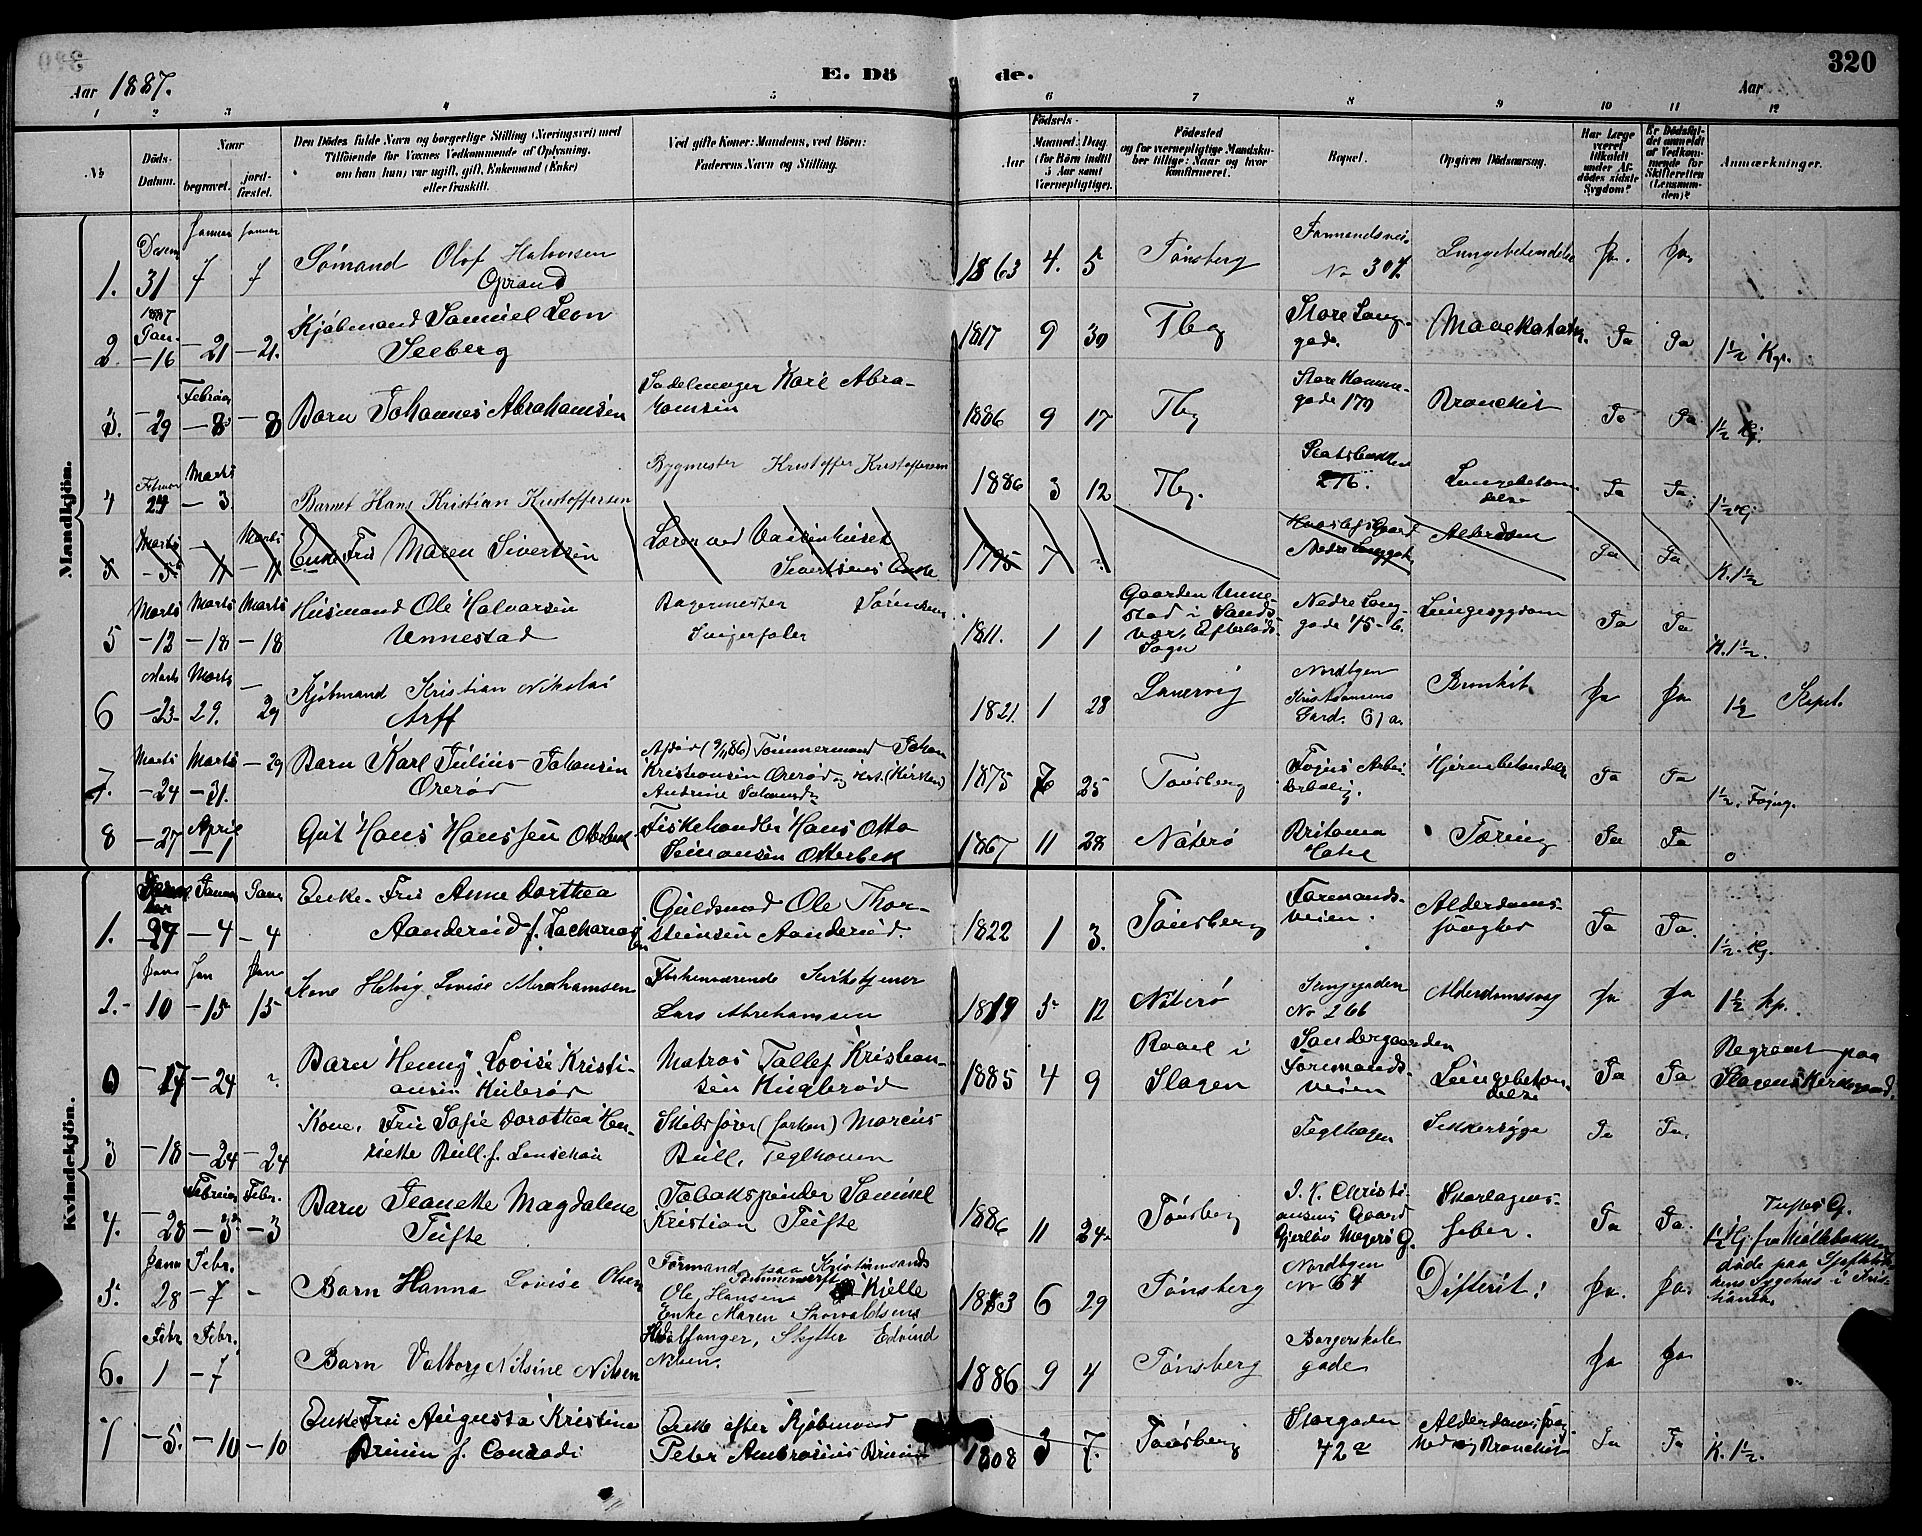 320
Aar 1887.
E. Dö de.
Aar
1 2 3 4 5 6 7 8 9 10 11 12
№
Döds-Datum.
Naar
begravet.
jordfæstet.
Den Dödes fulde Navn og borgerlige Stilling (Næringsvei) med
Tilföiende for Voxnes Vedkommende af Oplysning,
om han (hun) var ugift, gift, Enkemand (Enke)
eller fraskilt.
Ved gifte Koner: Mandens, ved Börn:
Faderens Navn og Stilling.
Födsels-
Aar
Maaned Dag
(for Börn indtil
5 Aar samt
Værnepligtige).
Födested
og for værnepligtige Mandskaber tillige: Naar og hvor
konfirmeret.
Bopæl.
Opgiven Dödsaarsag.
Har Læge
været
tilkaldt
under Afdödes sidste
Sygdom?
Er Dödsfaldet anmeldt
af Vedkommende for
Skifteretten
(Lensmanden)?
Anmærkninger.
Mandkjön.
1. Desem 31 Januar 7 Januar 7 Sømand Olof Halvorsen
1863 4. 5 Tønsberg Farmandsvei. No 307. Lungebetændelse Ja. Ja.
2. 1887 Jan. -16 -21 -21. Kjøbmand Samuel Leon
Seeberg
1817 9 30 Tbg Store Langgade. Mavekatarr. Ja Ja 1½ Kg.
3. -29 Februar -8 -8 Barn Johannes Abrahamsen
Sadelmager Karl Abrahamsen
1886 9 17 Tbg Store gade 179 Bronchit Ja Ja 1½ Kg.
4 Februar 24 Marts -3 Barnet Hans Kristian Kristoffersen
Bygmester Kristoffer Kristoffersen
1886 3 12 Tbg. 276. Lungebetændelse Ja Ja. 1½ Kg
5 Marts -5 -11 Marts -11 Enke Fru Maren Sivertsen
Lærer ved Vaisenhuset
Sivertsens Enke
1795 7 Nedre Langgade Alderdom Ja Ja. K. 1½
5 Marts -12 Marts -18 Marts -18 Husmand Ole Halvorsen
Unnestad
Bagermester Sørensens
Svigerfader
1811. 1 1 Gaarden Unnestad i Sandsvær, Efterløds
Sogn
Nedre Langgade 15-b. Lungesygdom Ja Ja K. 1½.
6 Marts -23- Marts 29. - 29 Kjøbmand Kristian Nikolai
Arff
1821. 1 28 Laurvig Nordbyen
Kristiansens
Gard. 61 a. Bronkit. Ja Ja 1½ Kapel.
7. Marts -24 Marts -31. -29 Barn Karl Julius Johansen
Orerød
Afdød (9/11 86) Tømmermand Johan
Kristiansen Orerød og
Andrine
1875 7 25 Tønsberg Føyns Arbeiderbolig. Hjernebetændelse Ja Ja 1½. Føyng.
8 -27 April -1 Gut Hans Hanssen Otterbek
Fiskehandler Hans Otto
Simonsen Otterbek
1867 11 28 Nøterø Britania
Hotel Tæring Ja Ja 0
Kvindekjön.
1. 27 Januar -4 Janu -4 Enke-Fru Anne Dorthea
Aanderud f. Zachariasen
Guldsmed Ole Thorsteinsen Aanderud.
1822 1 3. Tønsberg Farmandsveien. Alderdomssvaghed Ja Ja. 1½ Kg.
2.- Janu 10 Jan -15 Jan 15 Kone Helvig Lovise Abrahamsen
Forhenværende Kirketjener
Lars Abrahamsen
1819 5 12 Nøterø No 266 Alderdomssvag Ja Ja 1½ kp.
0 -17 -24 Barn Henny Lovise Kristiansen
Matros Tallef Kristiansen
1885 4 9 Raael i
Slagen Søndergaarden
Farmandsveien Lungebetændelse Ja Ja Begravet paa
Slagens Kirkegaard.
3 -18 -24 -24 Kone, Fru Sofie Dorothea Henriette Bull f.
Skibsfører (forhen) Marcus
Bull, Teglhoven
Teglhagen Sukkersyge Ja Ja.
4. -28 Februar -3 Febr. -3 Barn Jeanette Magdalene
Tufte
Tobakspinder Samuel
Kristian Tufte
1886 11 24 Tønsberg J. K. Christiansens Gaard
Meyers G. Skarlagensfeber. Ja Ja. Tuftes G.
1½ Kg. fra Møllebakken
5. Janu 28 Febr. -7 - Barn Hanna Lovise Olsen
Formand paa Kristiansands
Tømmerverft
Ole Hansen Kjelle
Enke Maren Thorvaldsen
1883 6 29 Tønsberg Nordbyen
No 64 Difterit. Ja. Ja. døde paa
Sygehus i Kristiania.
6. Febr 1 Febr. -7 Barn Valborg Nilsine Nilsen
Hvalfanger, Skytter Edvind
Nilsen.
1886 9 4 Tønsberg Borgerskole
gade Ja Ja
7 -5. -10 -10 Enke Fru Augusta Kristine
Bruun f. Conradi
Enke efter Kjøbmand
Peter Ambrosius Bruun
1808 3 7. Tønsberg Storgaden
42 a Alderdomssvaghed og Bronchit Ja Ja K. 1½.